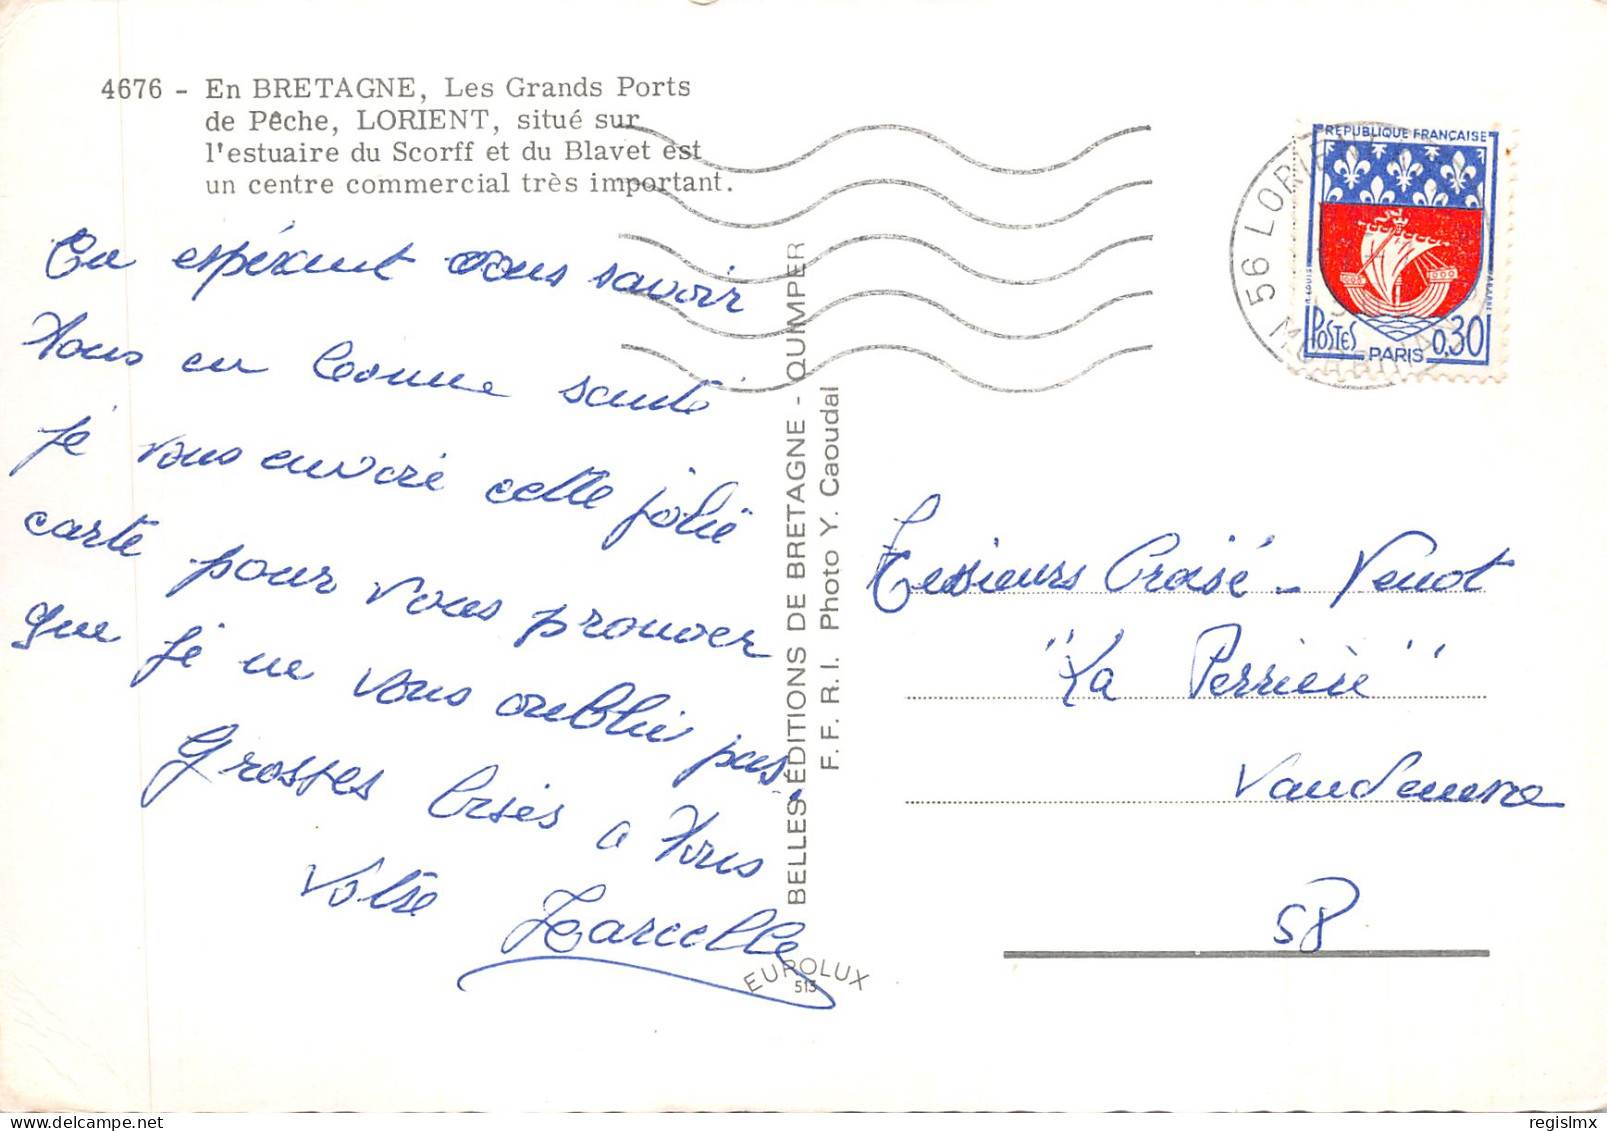 4676 - En BRETAGNE, Les Grands Ports
de Pêche, LORIENT, situé sur
l'estuaire du Scorff et du Blavet est
un centre commercial très important.
En espérant vous savoir
tous en bonne santé
je vous envoie cette jolie
carte pour vous prouver
que je ne vous oublie pas.
Grosses bises a tous
Votre Marcelle
BELLES ÉDITIONS DE BRETAGNE - QUIMPER
F. F. R. I. Photo Y. Caoudal
EUROLUX
513
56 LORIENT
MORBIHAN
REPUBLIQUE FRANCAISE
POSTES
PARIS
0,30
Messieurs Croisé - Venot
"La Perrière"
Vandenesse
58
regislmx